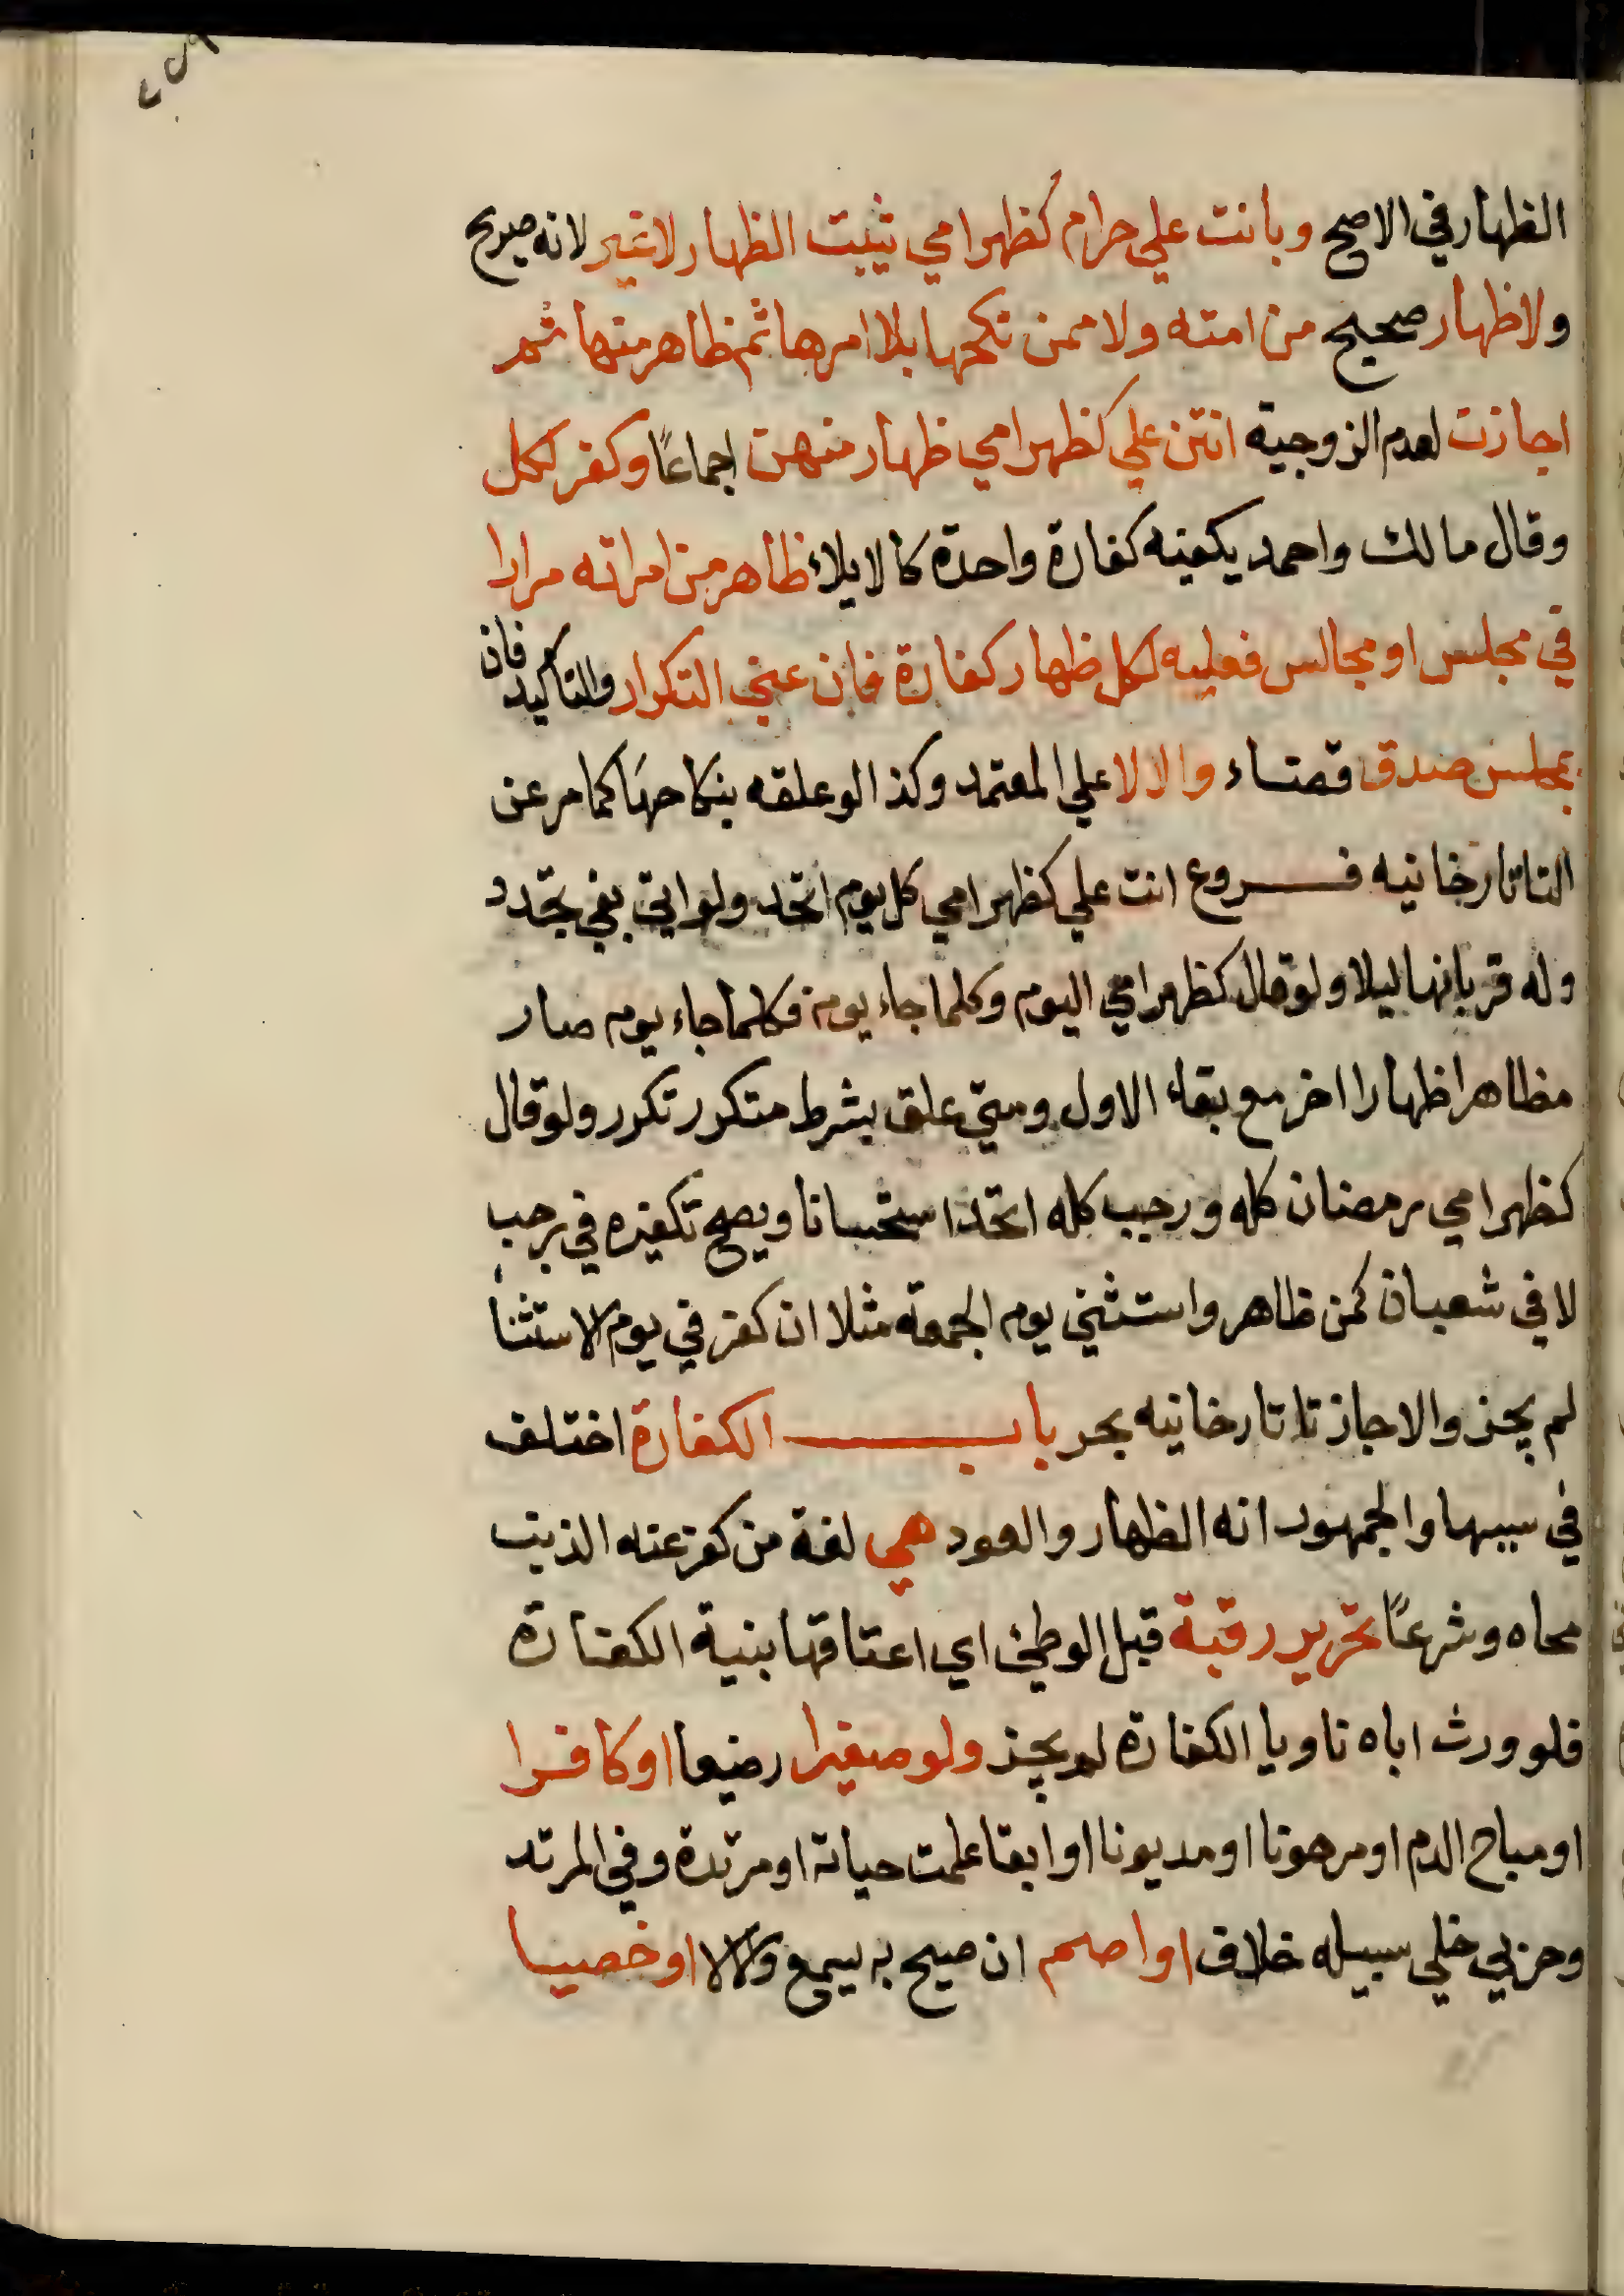 الظهار في الاصح وبانت علي حرام كظهر امي يثبت الظهار لا غير لانه صريح
ولا ظهار صحيح من امته ولا ممن نكحها بلا امرها ثم ظاهر منها ثم
اجازت لعدم الزوجية انتن علي كظهر امي ظهار منهن اجماعًا وكفر لكل
وقال مالك واحمد يكفيه كفارة واحدة كالايلاء ظاهر من امراته مرارا
في مجلس او مجالس فعليه لكل ظهار كفارة فان عني التكرار والتاكيد فان
بمجلس صدق قضاء والا لا علي المعتمد وكذا لو علقه بنكاحها كما مر عن
التاتارخانيه فروع انت علي كظهر امي كل يوم اتحد ولو اتي بفي تجدد
وله قربانها ليلا ولو قال كظهر امي اليوم وكلما جاء يوم فكلما جاء يوم صار
مظاهرا ظهارا اخر مع بقاء الاول ومتي علق بشرط متكرر تكرر ولو قال
كظهر امي رمضان كله ورجب كله اتحد استحسانا ويصح تكفيره في رجب
لا في شعبان كمن ظاهر واستثني يوم الجمعة مثلا ان كفر في يوم الاستثنا
لم يجز والا جاز تاتارخانيه بحر باب الكفارة اختلف
في سببها والجمهور انه الظهار والعود هي لغة من كفر عنه الذنب
محاه وشرعًا تحرير رقبة قبل الوطئ اي اعتاقها بنية الكفارة
فلو ورث اباه ناويا الكفارة لم يجز ولو صغيرا رضيعا او كافرا
او مباح الدم او مرهونا او مديونا او ابقا علمت حياته او مرتدة وفي المرتد
وحربي خلي سبيله خلاف او اصم ان صيح به يسمع والا لا او خصيا